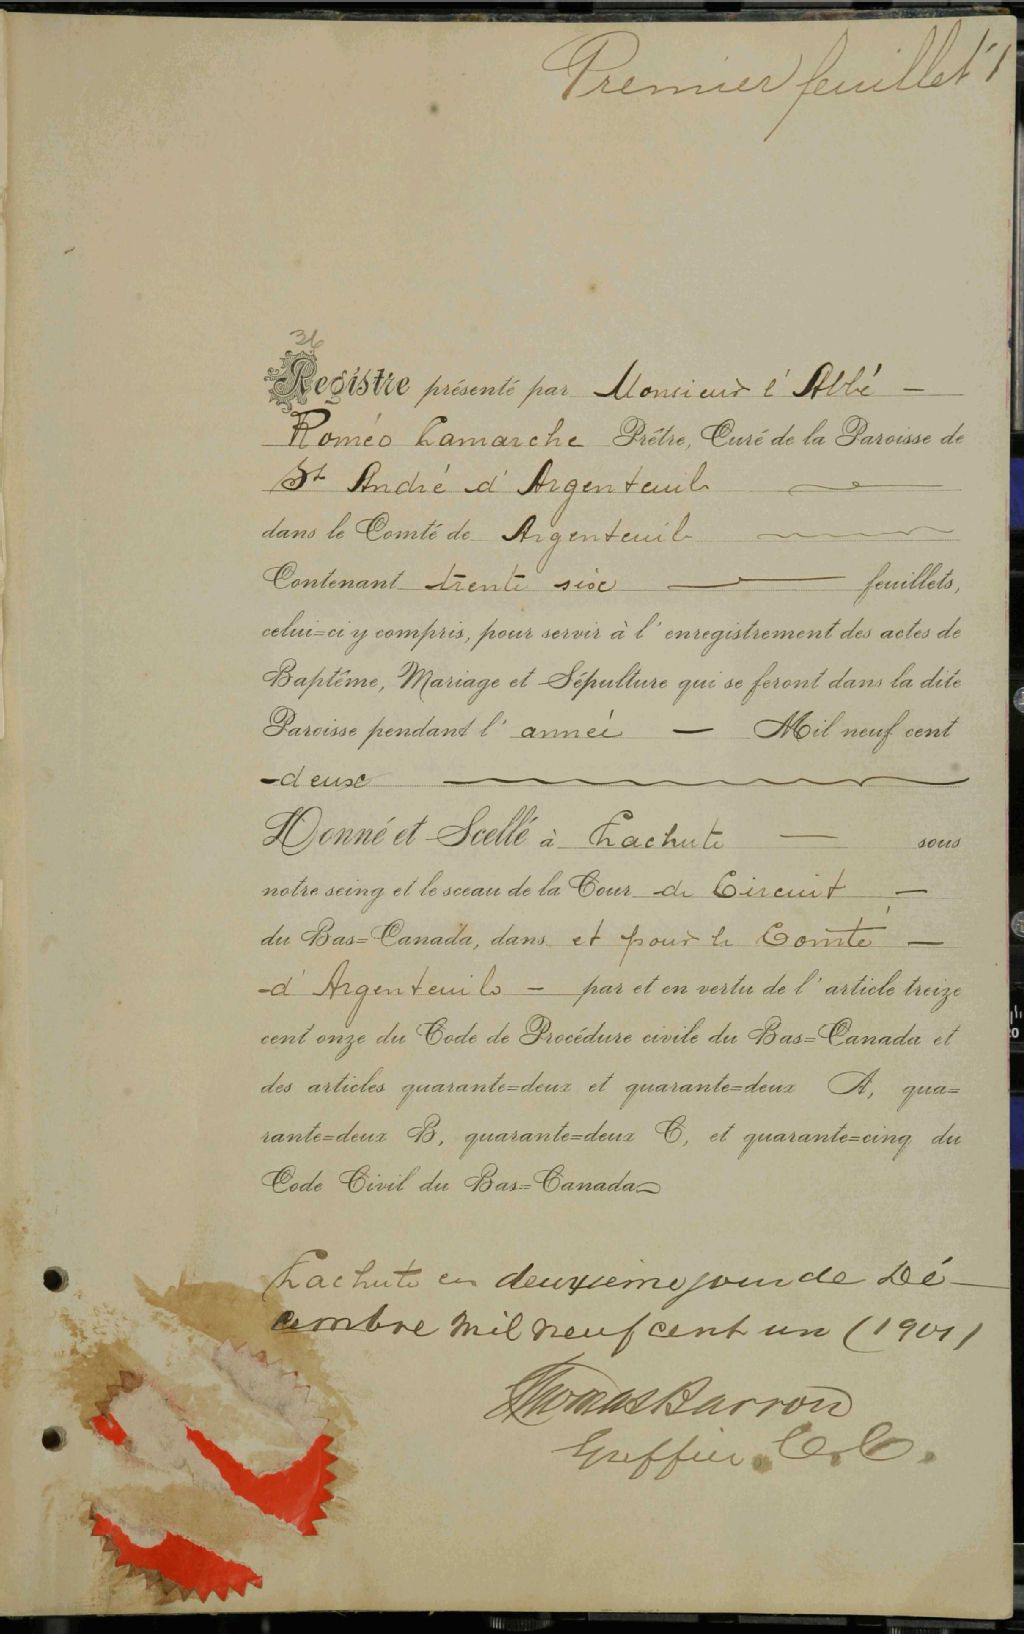 Premier feuillet 1
36
Registre présenté par Monsieur l'Abbé —
Roméo Lamarche Prêtre, Curé de la Paroisse de
St André d'Argenteuil
dans le Comté de Argenteuil
Contenant trente six — feuillets,
celui=ci y compris, pour servir à l'enregistrement des actes de
Baptême, Mariage et Sépulture qui se feront dans la dite
Paroisse pendant l'année — Mil neuf cent
-deux
Donné et Scellé à Lachute — sous
notre seing et le sceau de la Cour de Circuit —
du Bas=Canada, dans et pour le Comté —
-d'Argenteuil — par et en vertu de l'article treize
cent onze du Code de Procédure civile du Bas=Canada et
des articles quarante=deux et quarante=deux A, qua=
rante=deux B, quarante=deux C, et quarante=cinq du
Code Civil du Bas=Canada
Lachute ce deuxieme jour de Dé-
cembre mil neuf cent un (1901)
Thomas Barron
Greffier C.C.